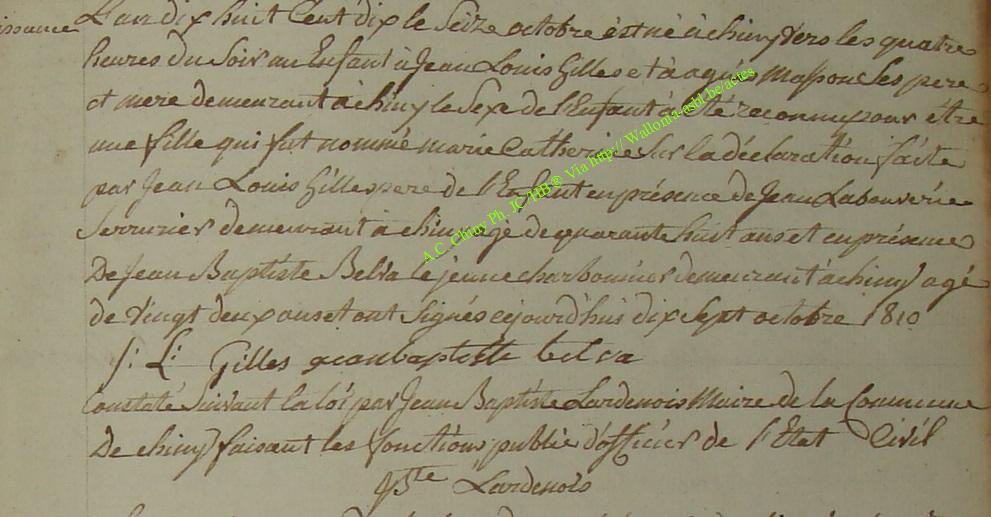 issance
L'an dix huit Cent dix le Seize octobre est né à chiny vers les quatre
heures du Soir un Enfant à Jean Louis Gilles et à agnès Masson Ses pere
et mere demeurant à chiny le Sexe de l'Enfant à été reconnu pour être
une fille qui fut nommé marie Catherine Sur la déclaration faite
par Jean Louis Gilles pere de l'Enfant en présence de Jean Labouverie
Serrurier demeurant à chiny agé de quarante huit ans et en présence
De Jean Baptiste Belva le jeune charbonnier demeurant à chiny agé
de Vingt deux ans et ont Signés cejourd'hui dix Sept octobre 1810
J: L: Gilles jean baptiste belva
Constaté Suivant la loi par Jean Baptiste Lardenois Maire de la Commune
De chiny faisant les fonctions public d'officier de l'Etat Civil
Lardenois
A.C. Chiny Ph. JC/HB ® Via http://Wallonia-asbl.be/actes